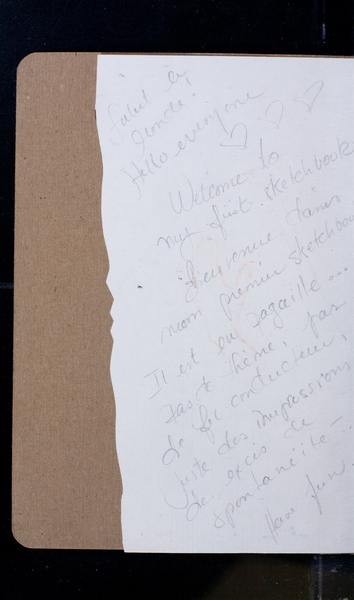 Salut le
monde!
Hello everyone
Welcome to
my first sketchbook
Bienvenue dans
mon premier sketchboo
Il est en pagaille...
Pas de thème, pas
de fil conducteur,
juste des impressions
de
spontanéité-
Have fun.